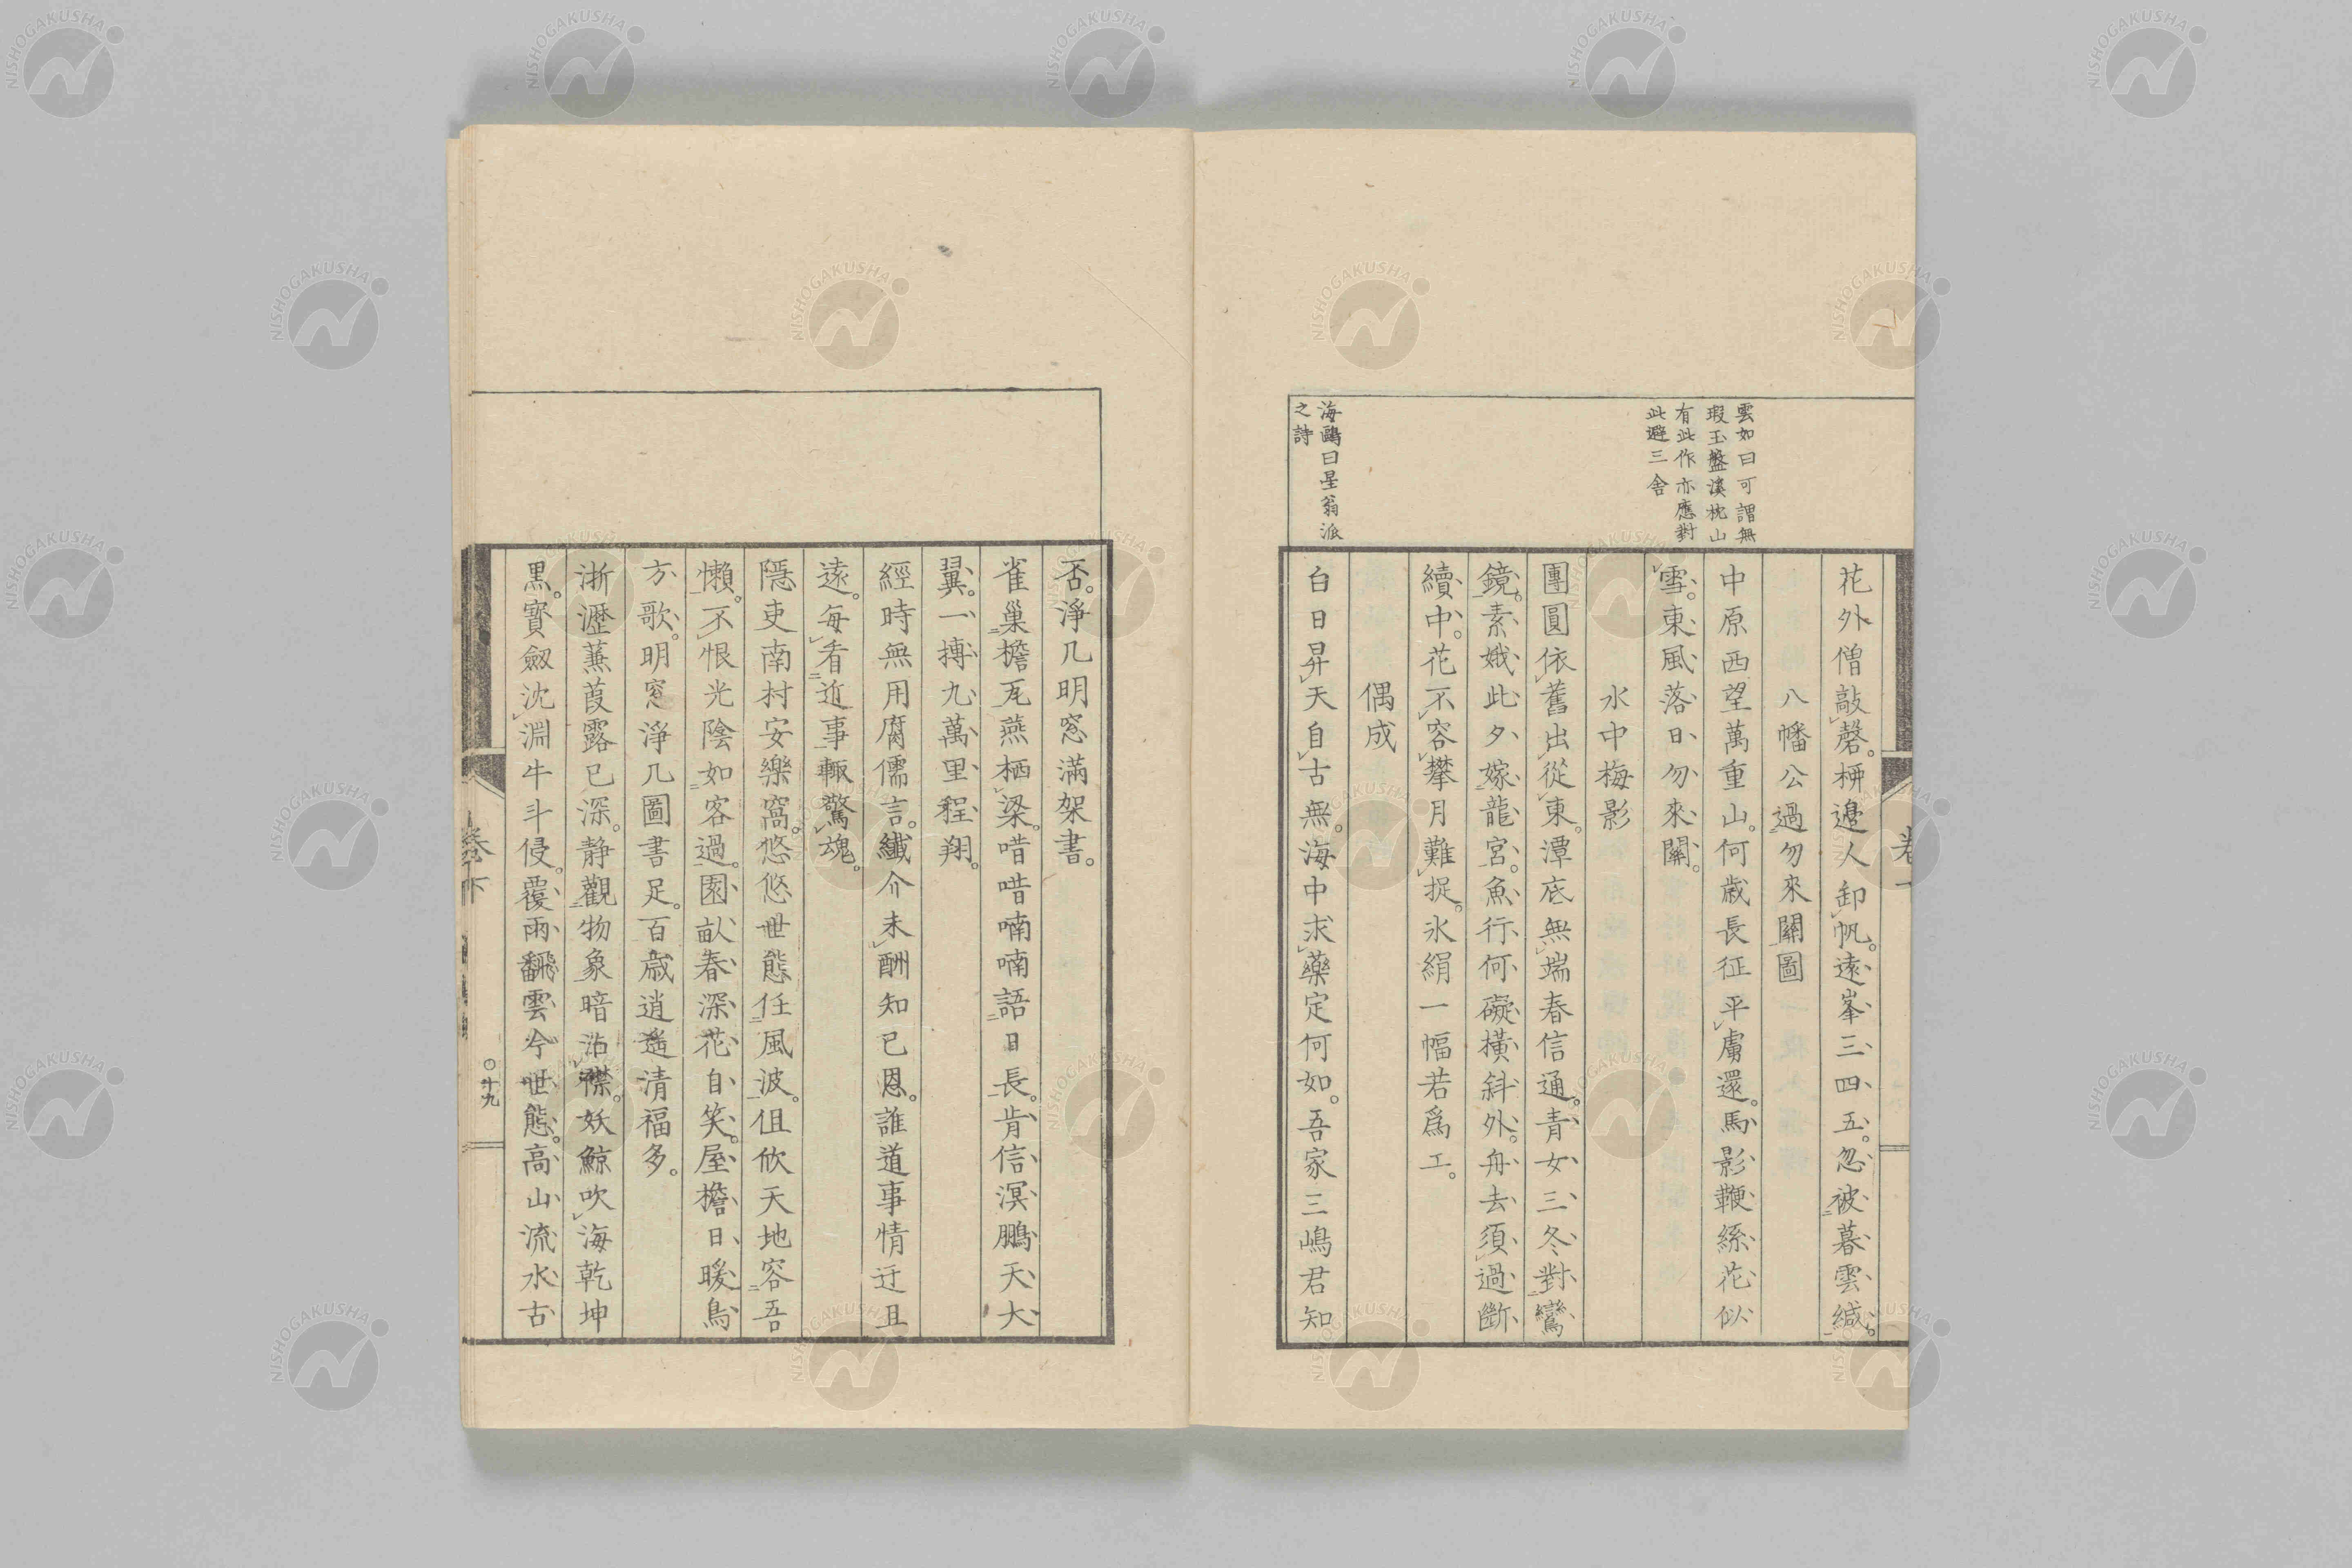 雲如曰可謂無
瑕玉盤溪枕山
有此作亦應對
此避三舍
海鷗曰星翁派
之詩
花外僧敲磬。栟邊人卸帆。遠峯三四五。忽被暮雲緘。
八幡公過勿來關圖
中原西望萬重山。何歲長征平虜還。馬影鞭絲花似
雪。東風落日勿來關。
水中梅影
團圓依舊出從東。潭底無端春信通。青女三冬對鸞
鏡。素娥此夕嫁龍宮。魚行何礙橫斜外。舟去須過斷
續中。花不容攀月難捉。氷絹一幅若爲工。
偶成
白日昇天自古無。海中求藥定何如。吾家三嶋君知
否。淨几明窓滿架書。
雀巢檐瓦燕栖梁。唶唶喃喃語日長。肯信溟鵬天大
翼。一搏九萬里程翔。
經時無用腐儒言。纖介未酬知已恩。誰道事情迂且
遠。每看近事輙驚魂。
隱吏南村安樂窩。悠悠世態任風波。俎攸天地容吾
懶。不恨光陰如客過。園畝春深花自笑。屋檐日暖鳥
方歌。明窓淨几圖書足。百歲逍遙清福多。
淅瀝蒹葭露已深。靜觀物象暗沾襟。妖鯨吹海乾坤
黑。寶劔沈淵牛斗侵。覆雨翻雲今世態。高山流水古
卷下
○十九
NISHOGAKUSHA